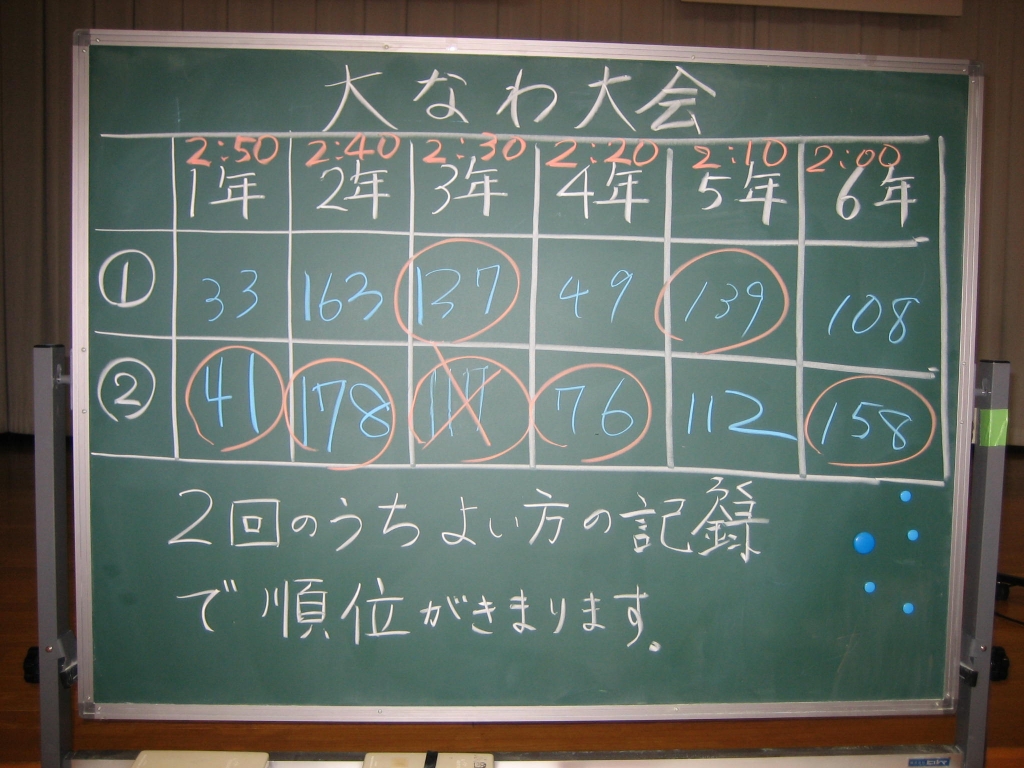 大なわ大会
2:50 2:40 2:30 2:20 2:10 2:00
1年 2年 3年 4年 5年 6年
① 33 163 137 49 139 108
② 41 178 117 76 112 158
2回のうちよい方の記録
で順位がきまります。